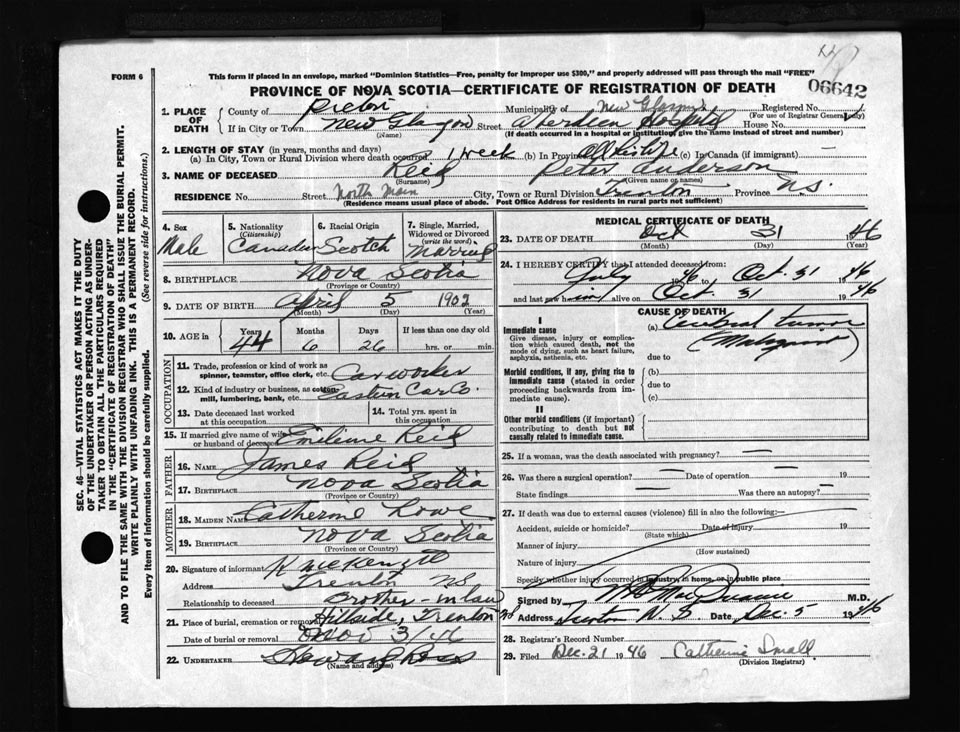 FORM 6
This form if placed in an envelope, marked "Dominion Statistics—Free, penalty for improper use $300," and properly addressed will pass through the mail "FREE"
PROVINCE OF NOVA SCOTIA—CERTIFICATE OF REGISTRATION OF DEATH
06642
1. PLACE OF DEATH
County of Pictou Municipality of New Glasgow Registered No.
(For use of Registrar General only)
If in City or Town New Glasgow Street Aberdeen Hospital House No.
(Name) (If death occurred in a hospital or institution, give the name instead of street and number)
2. LENGTH OF STAY (in years, months and days)
(a) In City, Town or Rural Division where death occurred 1 week (b) In Province All his life (c) In Canada (if immigrant) —
3. NAME OF DECEASED Reid Peter
(Surname) (Given name or names)
RESIDENCE No. Street North Main City, Town or Rural Division Trenton Province N.S.
(Residence means usual place of abode. Post Office Address for residents in rural parts not sufficient)
4. Sex Male
5. Nationality (Citizenship) Canadian
6. Racial Origin Scotch
7. Single, Married, Widowed or Divorced (write the word) Married
8. BIRTHPLACE Nova Scotia
(Province or Country)
9. DATE OF BIRTH April 5 1902
(Month) (Day) (Year)
10. AGE in Years 44 Months 6 Days 26 If less than one day old hrs. or min.
OCCUPATION
11. Trade, profession or kind of work as spinner, teamster, office clerk, etc. Car worker
12. Kind of industry or business, as cotton mill, lumbering, bank, etc. Eastern Car Co.
13. Date deceased last worked at this occupation
14. Total yrs. spent in this occupation
15. If married give name of wife or husband of deceased Reid
FATHER
16. NAME James Reid
17. BIRTHPLACE Nova Scotia
(Province or Country)
MOTHER
18. MAIDEN NAME Catherine Lowe
19. BIRTHPLACE Nova Scotia
(Province or Country)
20. Signature of informant H McKenzie
Address Trenton NS
Relationship to deceased Brother-in law
21. Place of burial, cremation or removal Hillside, Trenton NS
Date of burial or removal Nov 3/46
22. UNDERTAKER Howard Ross
(Name and address)
MEDICAL CERTIFICATE OF DEATH
23. DATE OF DEATH Oct 31 1946
(Month) (Day) (Year)
24. I HEREBY CERTIFY that I attended deceased from:
July 46 to Oct. 31 1946
and last saw him alive on Oct. 31 1946
CAUSE OF DEATH
I
Immediate cause
Give disease, injury or complication which caused death, not the mode of dying, such as heart failure, asphyxia, asthenia, etc.
(a) Cerebral tumor
(Malignant)
due to
Morbid conditions, if any, giving rise to immediate cause (stated in order proceeding backwards from immediate cause).
(b)
due to
(c)
II
Other morbid conditions (if important) contributing to death but not causally related to immediate cause.
25. If a woman, was the death associated with pregnancy? —
26. Was there a surgical operation? — Date of operation — 19
State findings Was there an autopsy? —
27. If death was due to external causes (violence) fill in also the following:—
Accident, suicide or homicide? Date of injury 19
(State which)
Manner of injury
(How sustained)
Nature of injury
Specify whether injury occurred in industry, in home, or in public place
Signed by M.D.
Address Trenton N.S. Date Dec. 5 1946
28. Registrar's Record Number
29. Filed Dec. 21 1946 Catherine Small
(Division Registrar)
SEC. 46—VITAL STATISTICS ACT MAKES IT THE DUTY
OF THE UNDERTAKER OR PERSON ACTING AS UNDER-
TAKER TO OBTAIN ALL THE PARTICULARS REQUIRED
IN THE "CERTIFICATE OF REGISTRATION OF DEATH"
AND TO FILE THE SAME WITH THE DIVISION REGISTRAR WHO SHALL ISSUE THE BURIAL PERMIT.
WRITE PLAINLY WITH UNFADING INK. THIS IS A PERMANENT RECORD.
Every item of information should be carefully supplied. (See reverse side for instructions.)